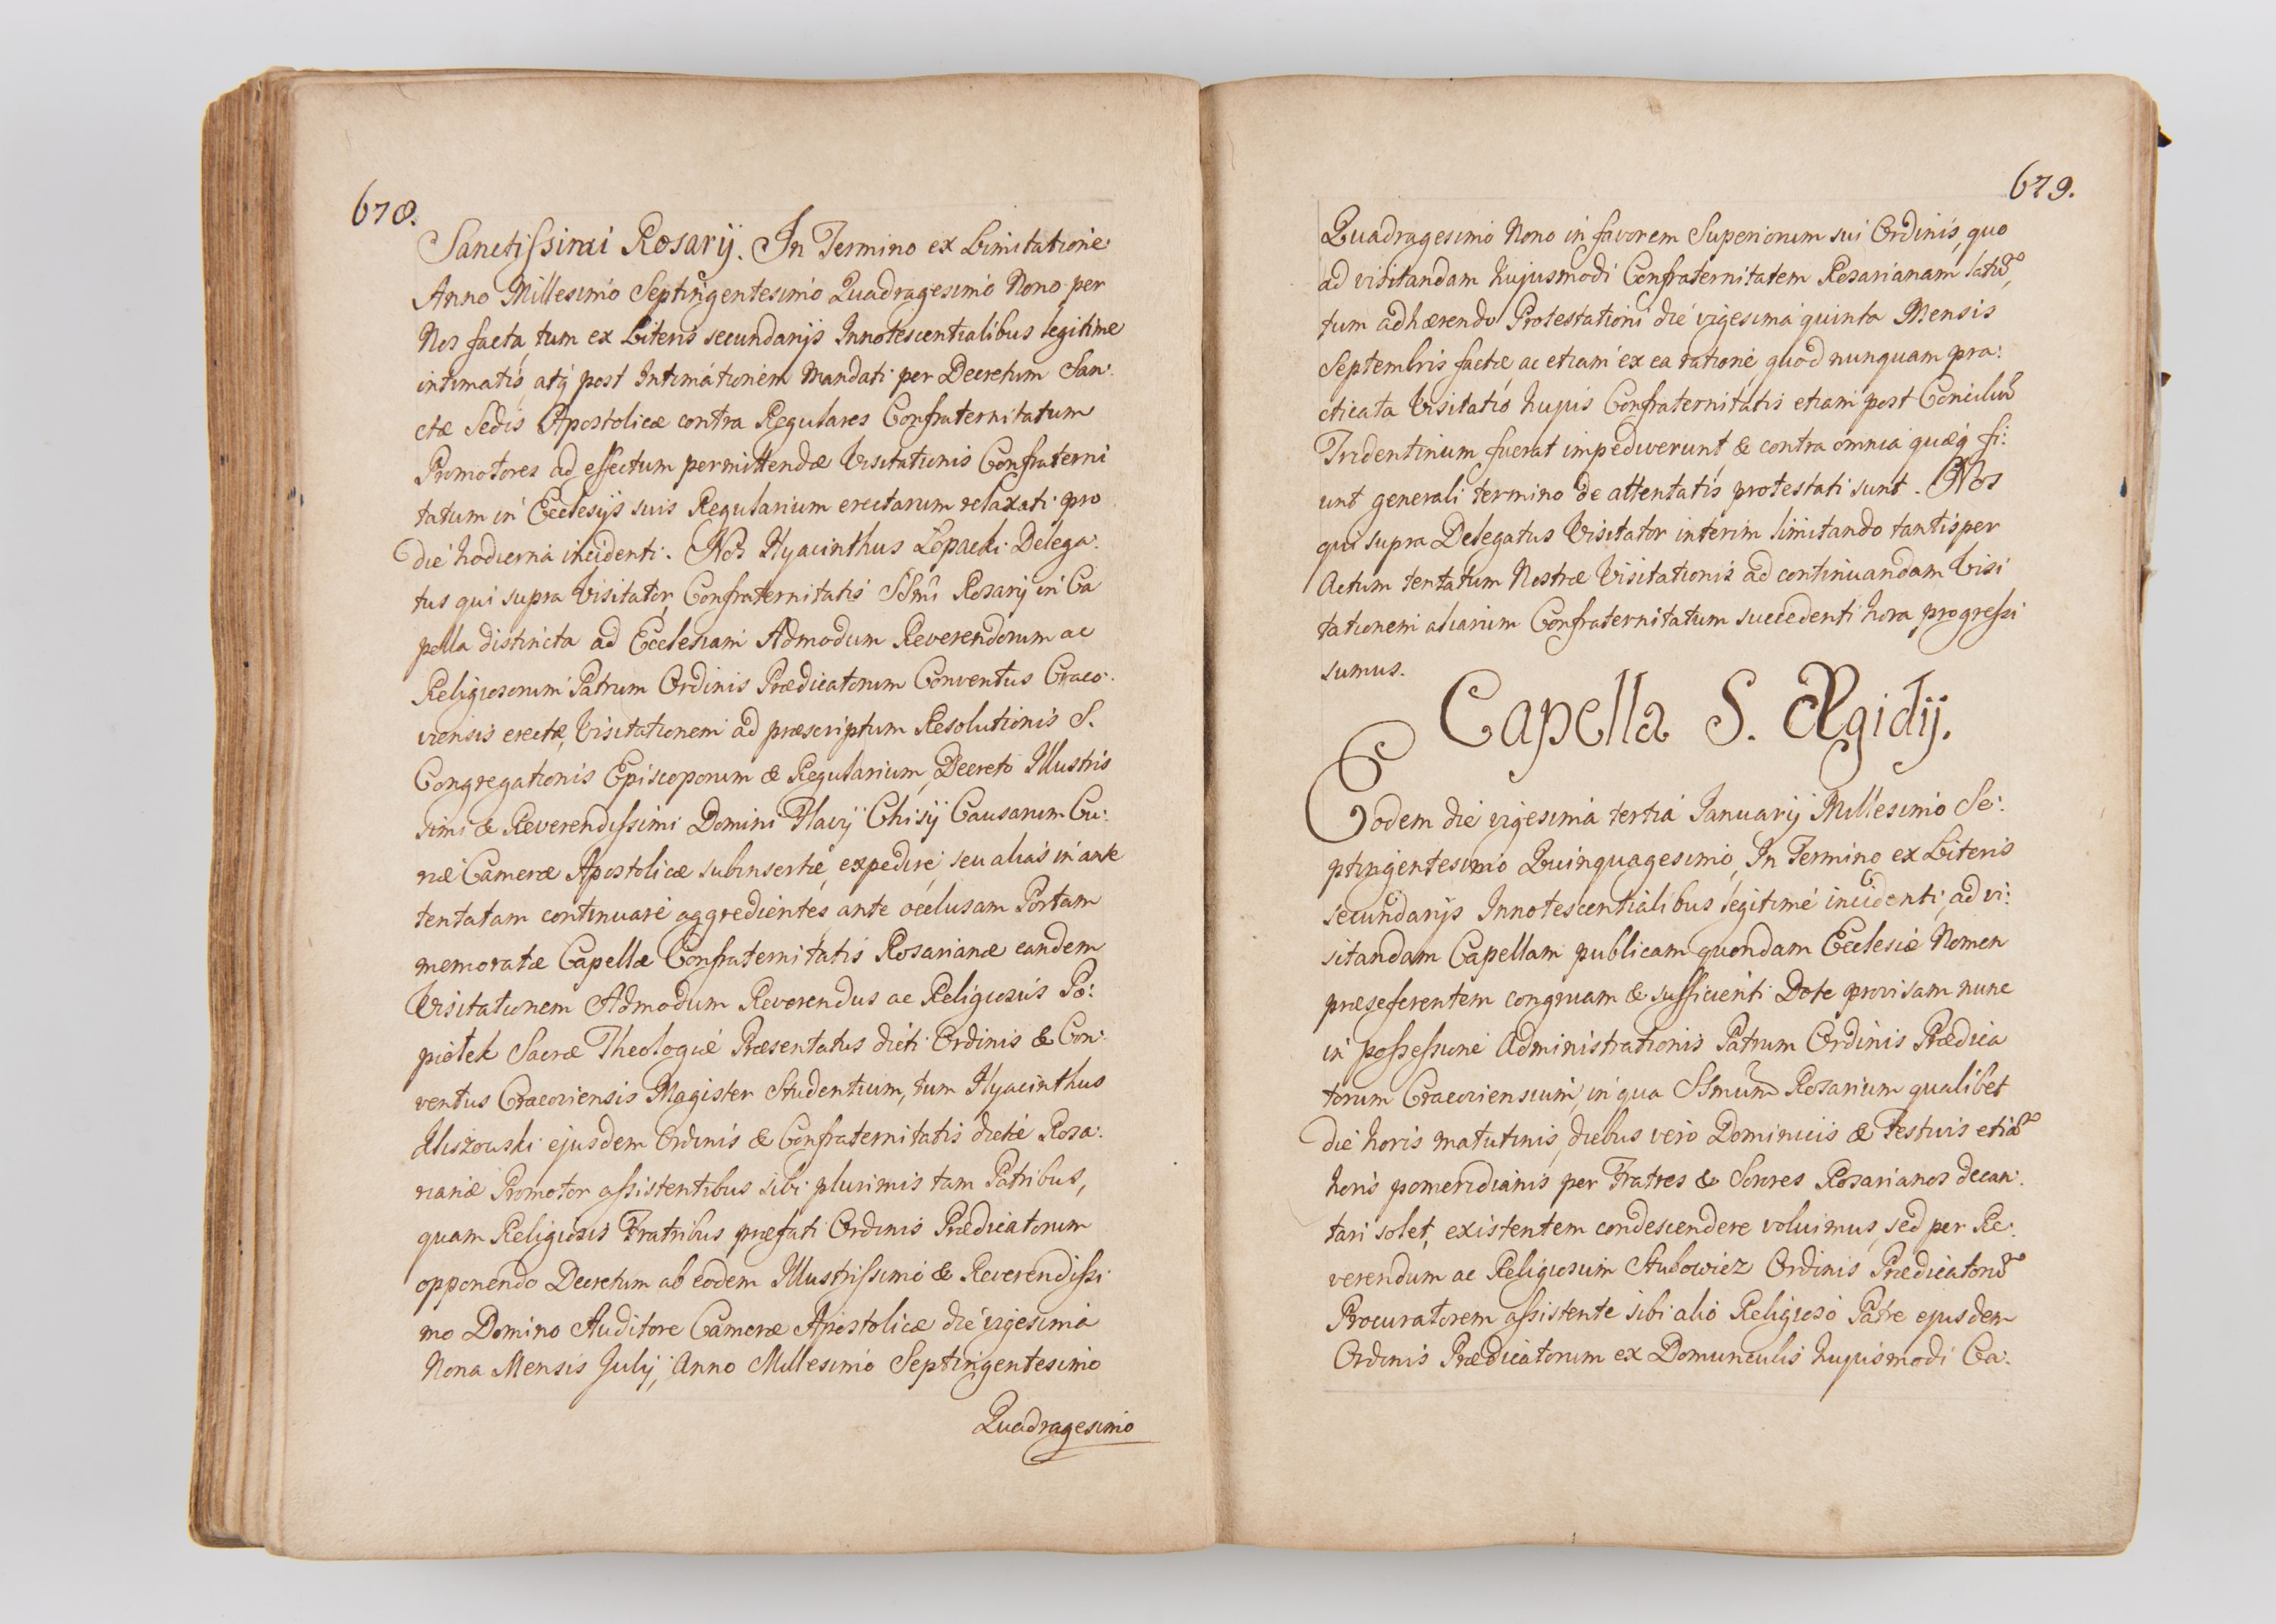 678.
Sanctissimi Rosarij. In Termino ex Limitatione
Anno Millesimo Septingentesimo Quadragesimo Nono per
Nos facta, tum ex Literis secundarijs Innotescentialibus legitime
intimatis, atq post Intimationem Mandati per Decretum San:
ctæ Sedis Apostolicæ contra Regulares Confraternitatum
Promotores ad effectum permittendæ Visitationis Confraterni
tatum in Ecclesijs suis Regularium erectarum relaxati pro
die hodierna incidenti. Nos Hyacinthus Łopacki Delega:
tus qui supra Visitator, Confraternitatis SSmi Rosarij in Ca
pella distincta ad Ecclesiam Admodum Reverendorum ac
Religiosorum Patrum Ordinis Prædicatorum Conventus Craco:
viensis erectæ, Visitationem ad præscriptum Resolutionis S.
Congregationis Episcoporum & Regularium, Decreto Illustris
simi & Reverendissimi Domini Flavij Chisij Causarum Cu:
riæ Cameræ Apostolicæ subinsertæ, expedire, seu alias in ante
tentatam continuare aggredientes, ante occlusam Portam
memoratæ Capellæ Confraternitatis Rosarianæ eandem
Visitationem Admodum Reverendus ac Religiosus Po:
piołek Sacræ Theologiæ Præsentatus dicti Ordinis & Con:
ventus Cracoviensis Magister Studentium, tum Hyacinthus
ejusdem Ordinis & Confraternitatis dictæ Rosa:
rianæ Promotor assistentibus sibi plurimis tam Patribus,
quam Religiosis Fratribus præfati Ordinis Prædicatorum
opponendo Decretum ab eodem Illustrissimo & Reverendissi
mo Domino Auditore Cameræ Apostolicæ die vigesima
Nona Mensis Julij, Anno Millesimo Septingentesimo
Quadragesimo
679.
Quadragesimo Nono in favorem Superiorum sui Ordinis, quo
ad visitandam hujusmodi Confraternitatem Rosarianam latū,
tum adhærendo Protestationi die vigesima quinta Mensis
Septembris factæ ac etiam ex ea ratione quod nunquam pra:
cticata Visitatio hujus Confraternitatis etiam post Conciliū
Tridentinum fuerat impediverunt, & contra omnia quæq fi:
unt generali termino de attentatis protestati sunt. Nos
qui supra Delegatus Visitator interim limitando tantisper
Actum tentatum Nostræ Visitationis ad continuandam Visi
tationem aliarum Confraternitatum succedenti hora progressi
sumus.
Capella S. Ægidij.
Eodem die vigesima tertia Januarij Millesimo Se:
ptingentesimo Quinquagesimo, In Termino ex Literis
secundarijs Innotescentialibus legitime incidenti, ad vi:
sitandam Capellam publicam quondam Ecclesiæ Nomen
præseferentem congruam & sufficienti Dote provisam nunc
in possessione Administrationis Patrum Ordinis Prædica
torum Cracoviensium, in qua SSmūm Rosarium qualibet
die horis matutinis, diebus vero Dominicis & Festivis etiā
horis pomeridianis per Fratres & Sorores Rosarianos decan:
tari solet, existentem condescendere voluimus, sed per Re:
verendum ac Religiosum Stubowicz Ordinis Prædicatorū
Procuratorem assistente sibi alio Religioso Patre ejusdem
Ordinis Prædicatorum ex Domunculis hujusmodi Ca: